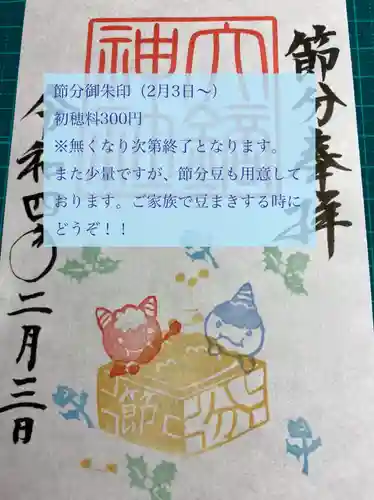 節分奉拝
節分御朱印（2月3日〜）
初穂料300円
※無くなり次第終了となります。
また少量ですが、節分豆も用意して
おります。ご家族で豆まきする時に
どうぞ！！
令和四年
二月三日
節分